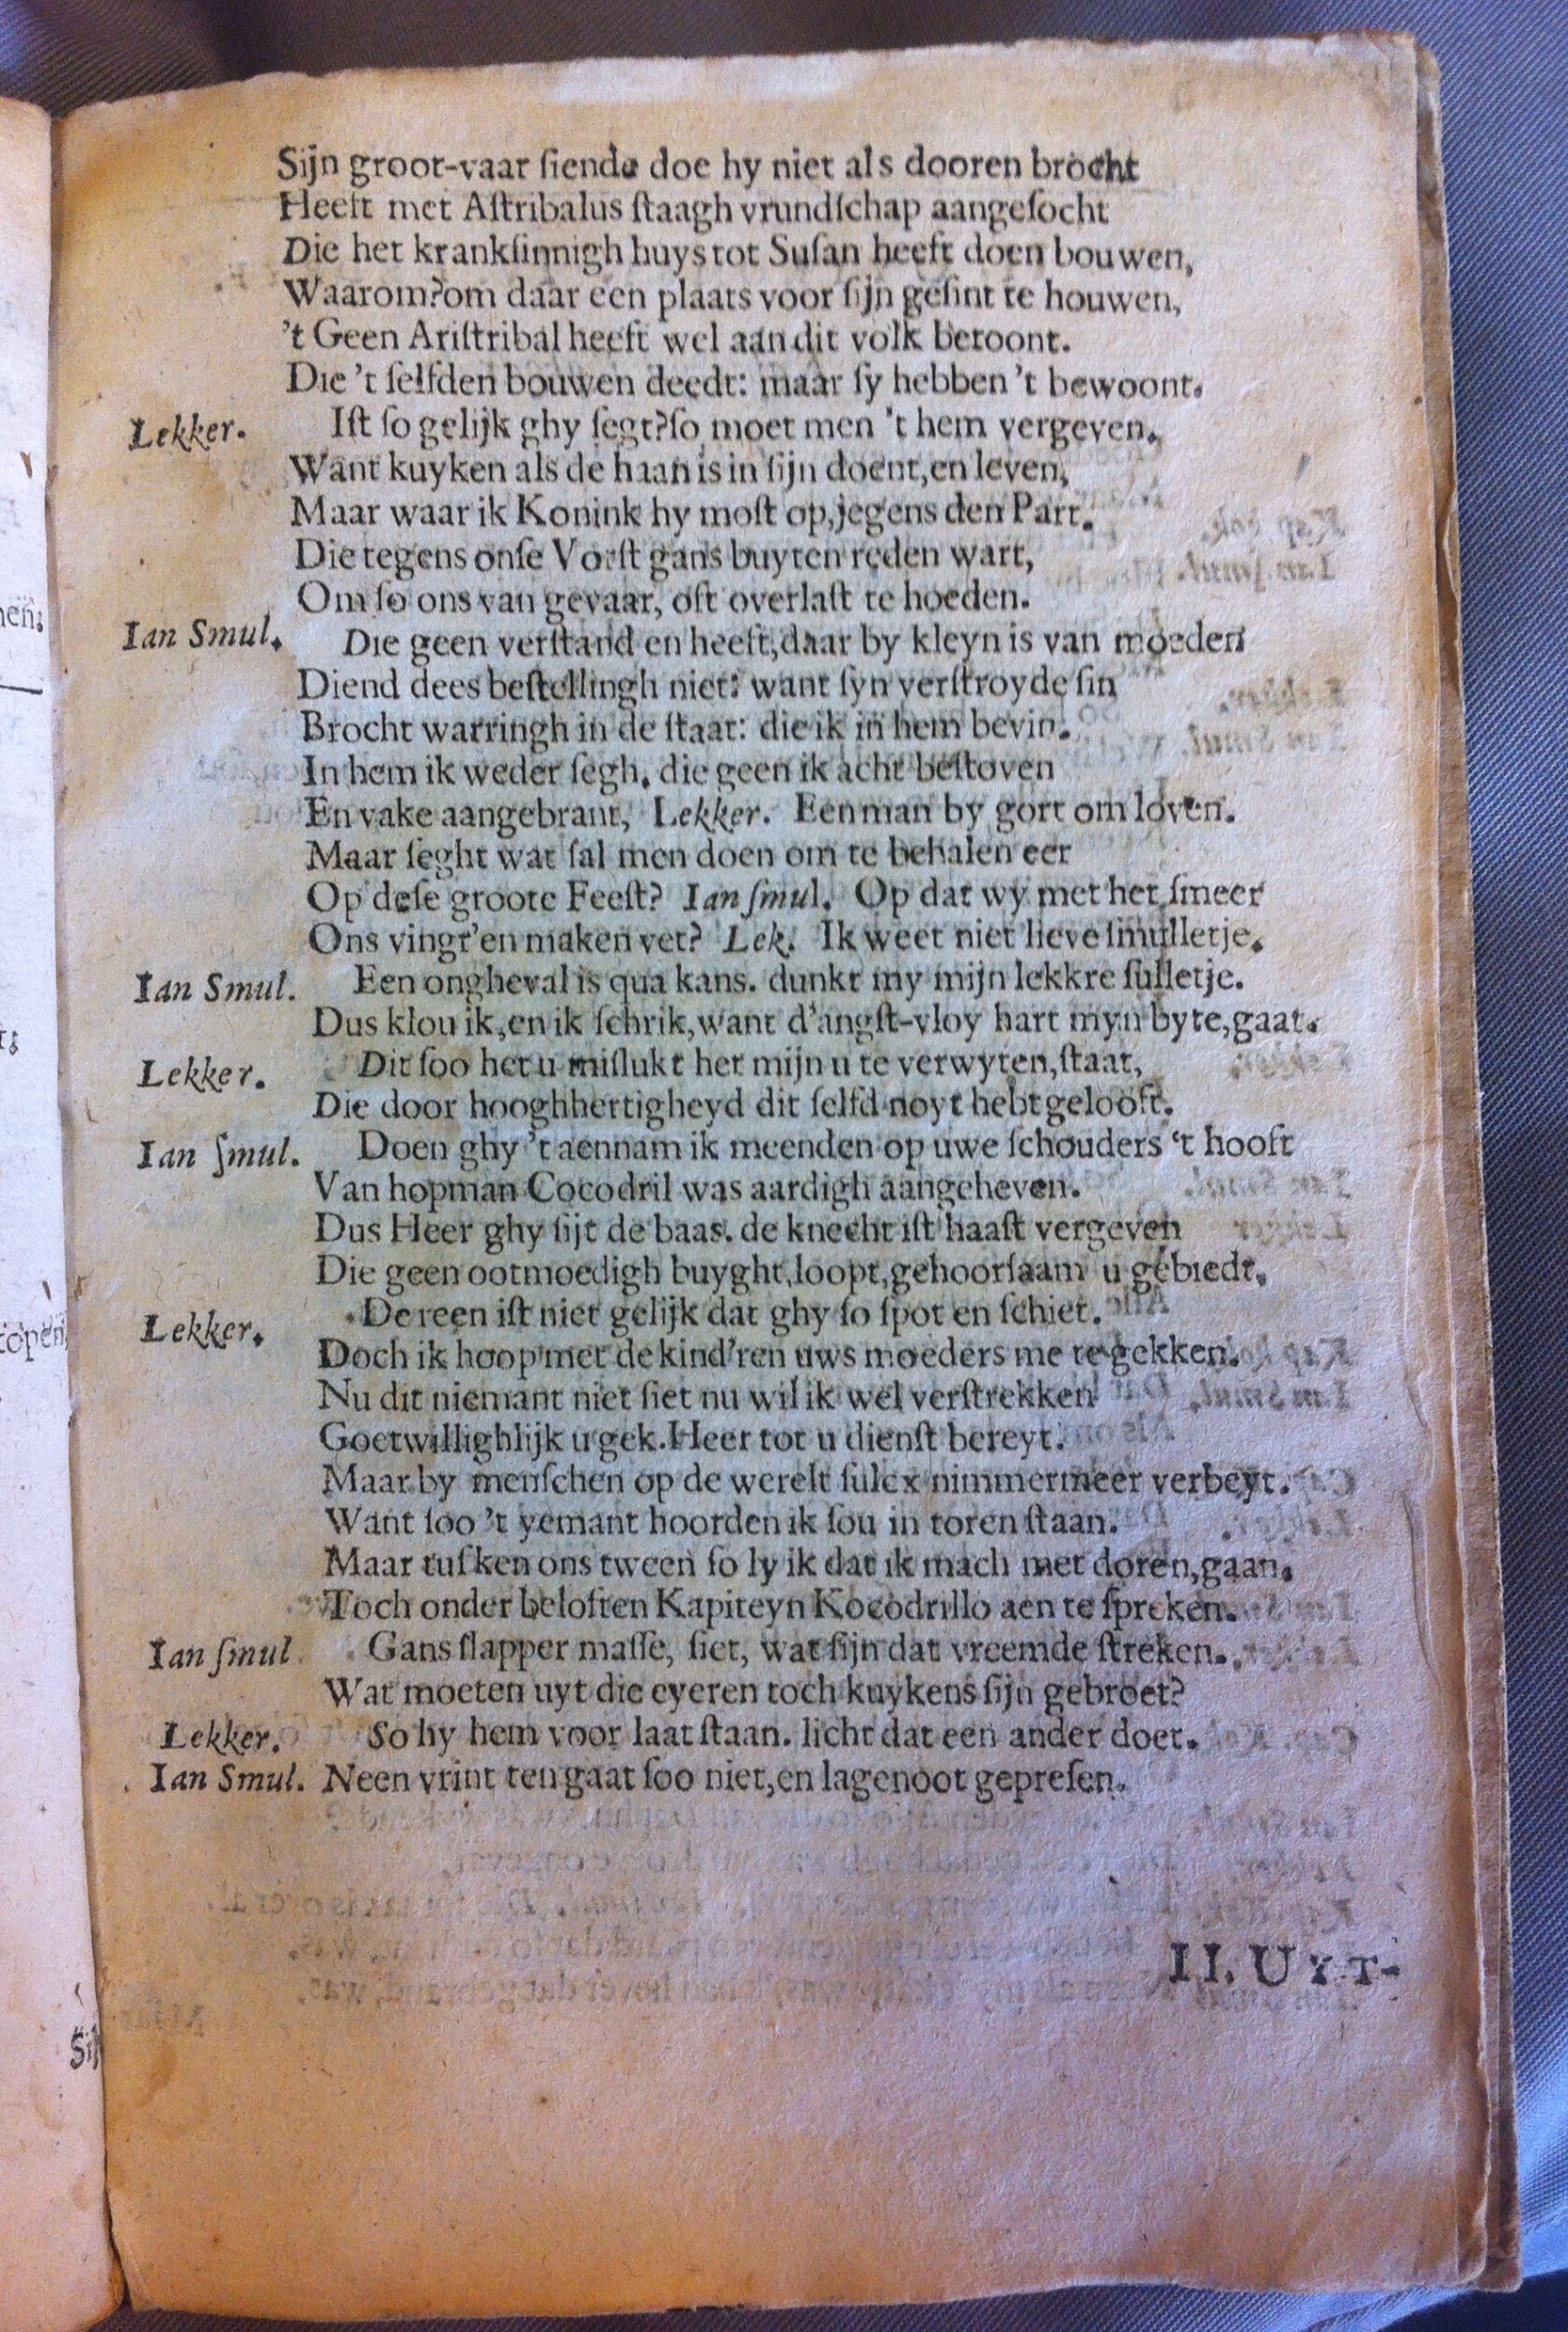 Sijn groot-vaar ſiende doe hy niet als dooren brocht
Heeft met Aſtribalus ſtaagh vrundſchap aangeſocht
Die het krankſinnigh huys tot Suſan heeft doen bouwen,
Waarom?om daar een plaats voor ſijn geſint te houwen,
't Geen Ariſtribal heeft wel aan dit volk betoont.
Die 't ſelfden bouwen deedt: maar ſy hebben 't bewoont.
Lekker. Iſt ſo gelijk ghy ſegt?ſo moet men 't hem vergeven.
Want kuyken als de haan is in ſijn doent,en leven,
Maar waar ik Konink hy moſt op,jegens den Part.
Die tegens onſe Vorſt gans buyten reden wart,
Om ſo ons van gevaar, oft overlaſt te hoeden.
Ian Smul. Die geen verſtand en heeft,daar by kleyn is van moeden
Diend dees beſtellingh niet: want ſyn verſtroyde ſin
Brocht warringh in de ſtaat: die ik in hem bevin.
In hem ik weder ſegh. die geen ik acht beſtoven
En vake aangebrant, Lekker. Een man by gort om loven.
Maar ſeght wat ſal men doen om te behalen eer
Op deſe groote Feeſt? Ian ſmul. Op dat wy met het ſmeer
Ons vingr'en maken vet? Lek. Ik weet niet lieve ſmulletje.
Ian Smul. Een ongheval is qua kans. dunkt my mijn lekkre ſulletje.
Dus klou ik,en ik ſchrik,want d'angſt-vloy hart myn byte,gaat.
Lekker. Dit ſoo het u miſlukt het mijn u te verwyten,ſtaat,
Die door hooghhertigheyd dit ſelfd noyt hebt gelooft.
Ian ſmul. Doen ghy 't aennam ik meenden op uwe ſchouders 't hooft
Van hopman Cocodril was aardigh aangeheven.
Dus Heer ghy ſijt de baas. de knecht iſt haaſt vergeven
Die geen ootmoedigh buyght,loopt,gehoorſaam u gebiedt,
Lekker. De reen iſt niet gelijk dat ghy ſo ſpot en ſchiet.
Doch ik hoop met de kind'ren uws moeders me te gekken.
Nu dit niemant niet ſiet nu wil ik wel verſtrekken
Goetwillighlijk u gek.Heer tot u dienſt bereyt.
Maar by menſchen op de werelt ſulcx nimmermeer verbeyt.
Want ſoo 't yemant hoorden ik ſou in toren ſtaan.
Maar tuſken ons tween ſo ly ik dat ik mach met doren,gaan,
Toch onder beloften Kapiteyn Kocodrillo aen te ſpreken.
Ian ſmul Gans ſlapper maſſe, ſiet, wat ſijn dat vreemde ſtreken.
Wat moeten uyt die eyeren toch kuykens ſijn gebroet?
Lekker. So hy hem voor laat ſtaan. licht dat een ander doet.
Ian Smul. Neen vrint ten gaat ſoo niet,en lagenoot gepreſen.
II. UYT-